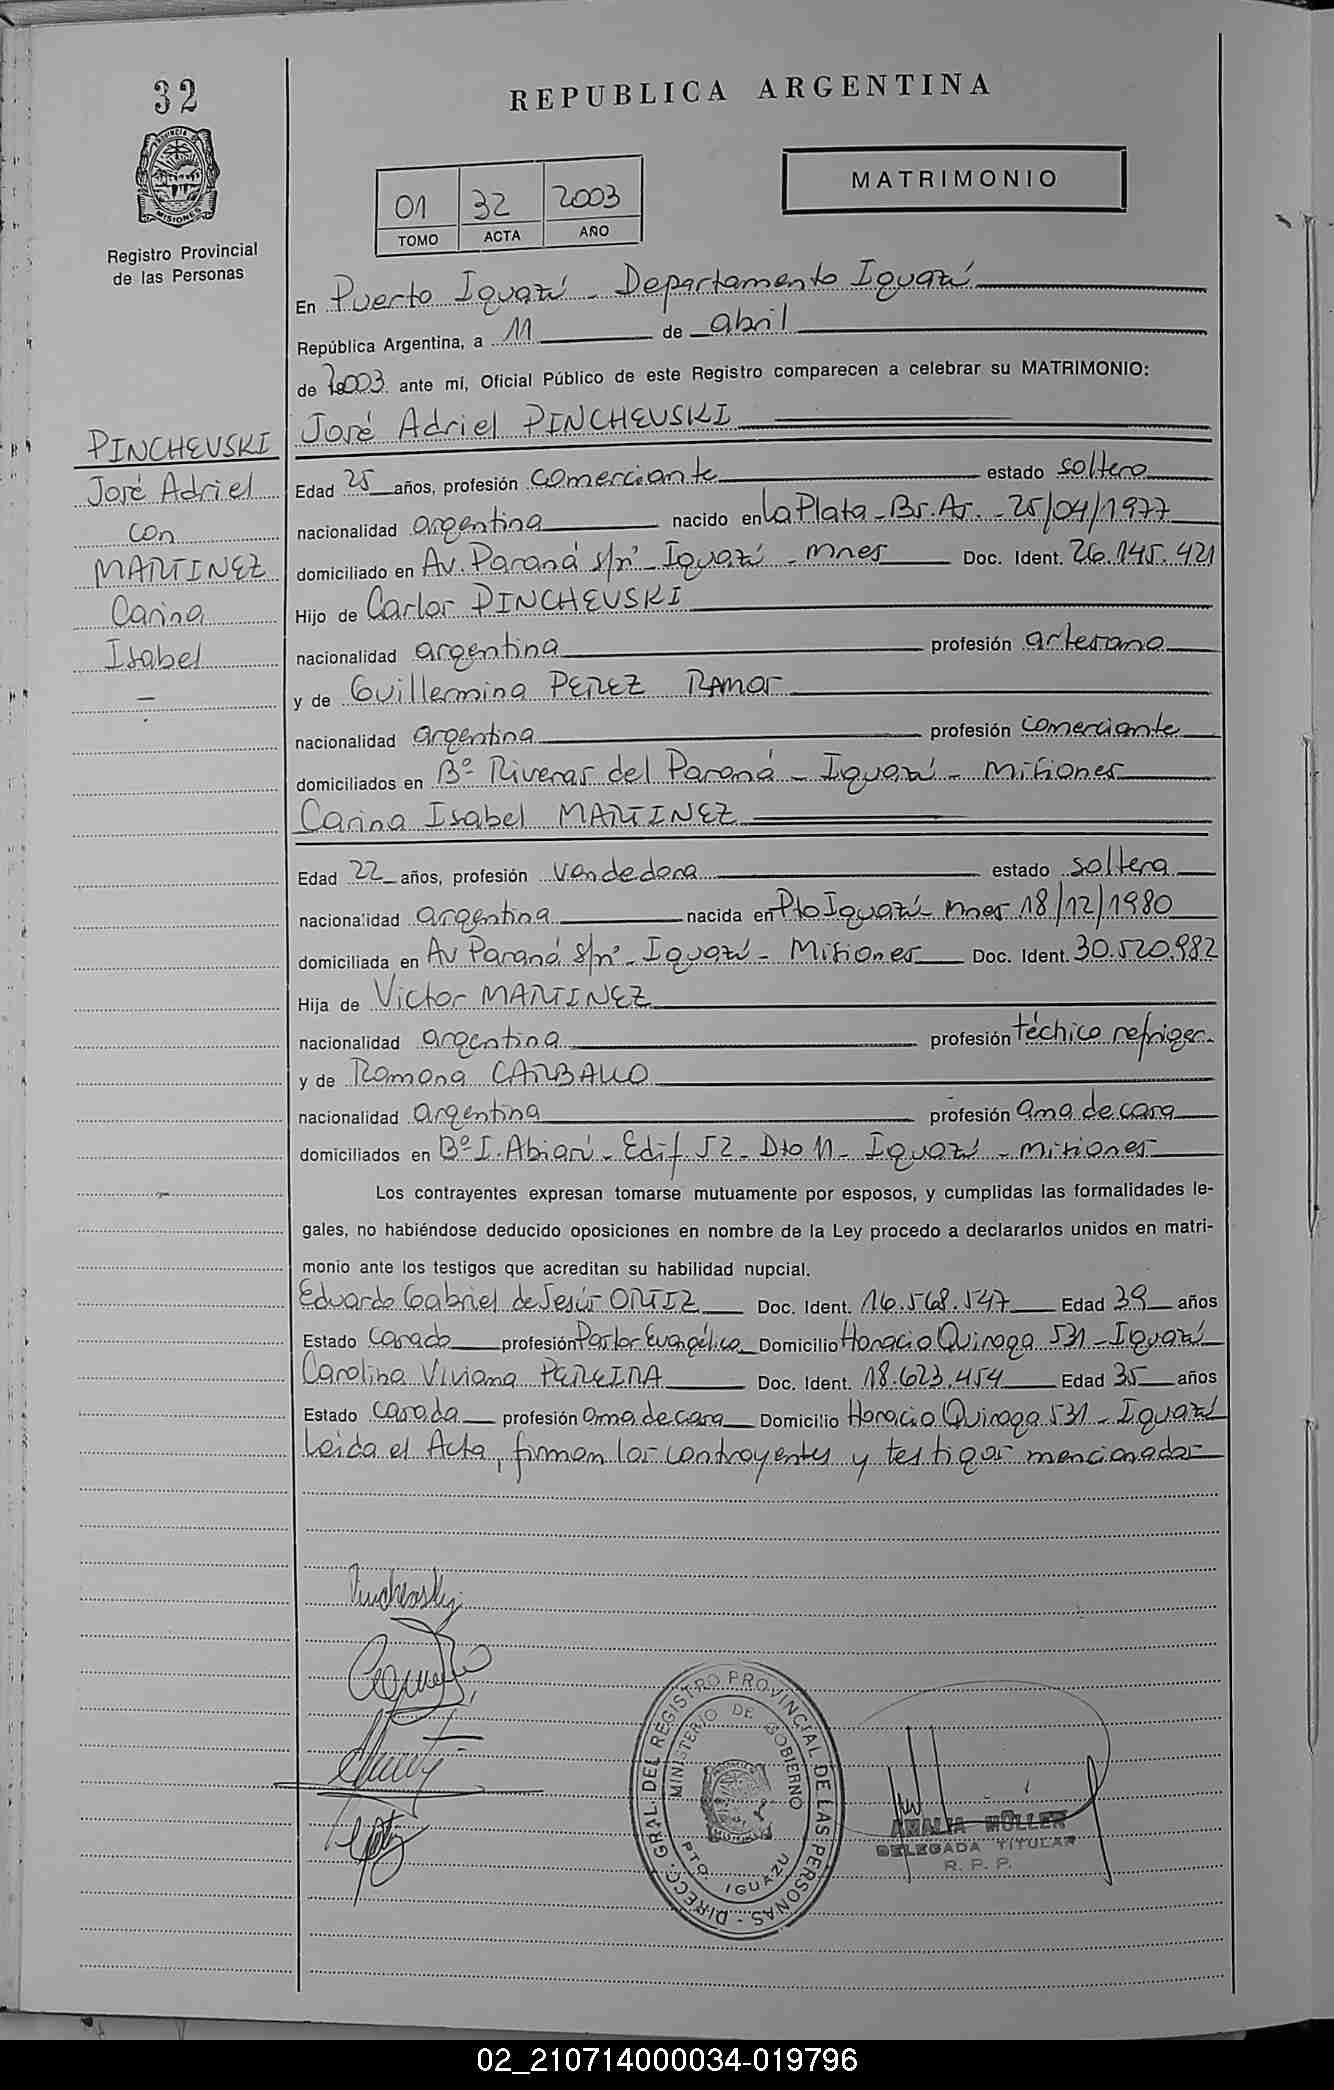 32
REPUBLICA ARGENTINA
PROVINCIA DE
MISIONES
Registro Provincial
de las Personas
01 32 2003
TOMO ACTA AÑO
MATRIMONIO
En Puerto Iguazú - Departamento Iguazú
República Argentina, a 11 de abril
de 2003 ante mí, Oficial Público de este Registro comparecen a celebrar su MATRIMONIO:
José Adriel PINCHEVSKI
PINCHEVSKI
José Adriel
con
MARTINEZ
Carina
Isabel
Edad 25 años, profesión comerciante estado soltero
nacionalidad argentina nacido en La Plata - Bs. As. - 25/04/1977
domiciliado en Av. Paraná s/nº - Iguazú - Mnes Doc. Ident. 26.145.421
Hijo de Carlos PINCHEVSKI
nacionalidad argentina profesión artesano
y de Guillermina PEREZ RAMOS
nacionalidad argentina profesión comerciante
domiciliados en Bº Riveras del Paraná - Iguazú - Misiones
Carina Isabel MARTINEZ
Edad 22 años, profesión vendedora estado soltera
nacionalidad argentina nacida en Pto Iguazú - Mnes 18/12/1980
domiciliada en Av Paraná s/nº - Iguazú - Misiones Doc. Ident. 30.520.982
Hija de Victor MARTINEZ
nacionalidad argentina profesión técnico refriger.
y de Ramona CARBALLO
nacionalidad argentina profesión ama de casa
domiciliados en Bº I. Abiari - Edif. 52 - Dto 11 - Iguazú - Misiones
Los contrayentes expresan tomarse mutuamente por esposos, y cumplidas las formalidades le-
gales, no habiéndose deducido oposiciones en nombre de la Ley procedo a declararlos unidos en matri-
monio ante los testigos que acreditan su habilidad nupcial.
Eduardo Gabriel de Jesús ORTIZ Doc. Ident. 16.568.547 Edad 39 años
Estado casado profesión Pastor Evangélico Domicilio Horacio Quiroga 531 - Iguazú
Carolina Viviana PEREIRA Doc. Ident. 18.623.454 Edad 35 años
Estado casada profesión ama de casa Domicilio Horacio Quiroga 531 - Iguazú
Leida el Acta, firman los contrayentes y testigos mencionados
Pinchevski
DIRECC. GRAL. DEL REGISTRO PROVINCIAL DE LAS PERSONAS
MINISTERIO DE GOBIERNO
PTO. IGUAZU
AMALIA MÜLLER
DELEGADA TITULAR
R. P. P.
02_210714000034-019796